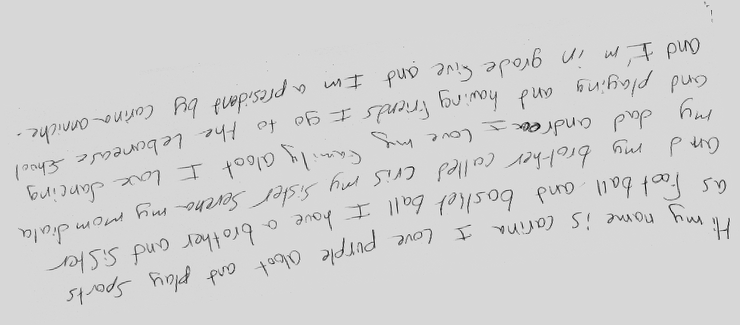 Hi my name is carina I Love purple aloot and play sports
as foot ball and basket ball I have a brother and sister
and my brother called cris my sister serena my mom diala
my dad I Love my family aloot I Love dancing
and playing and having friends I go to the Lebanease school
and I'm in grade five and Im a president by carina anniche.